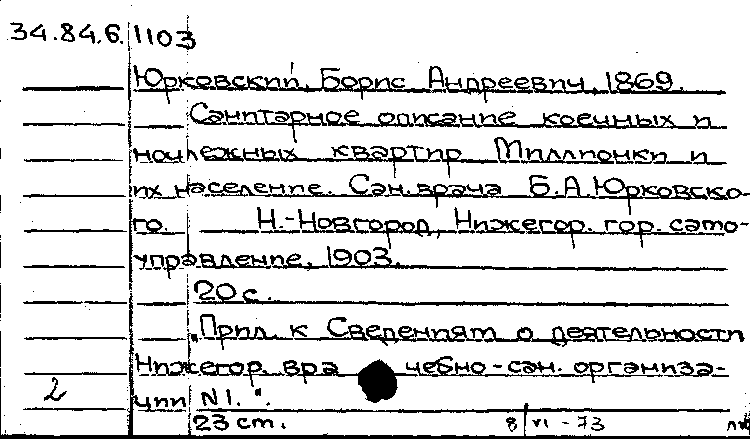 34.84.6.1103
Юрковский, Борис Андреевич, 1869.
Санитарное описание коечных и
ночлежных квартир Миллионки и
их население. Сан. врача Б.А.Юрковско-
го. Н.-Новгород, Нижегор. гор. само-
управление, 1903.
20 с.
"Прил. к Сведениям о деятельности
Нижегор. врачебно-сан. организа-
ции N1.".
2
23 cm. 8/VI - 73